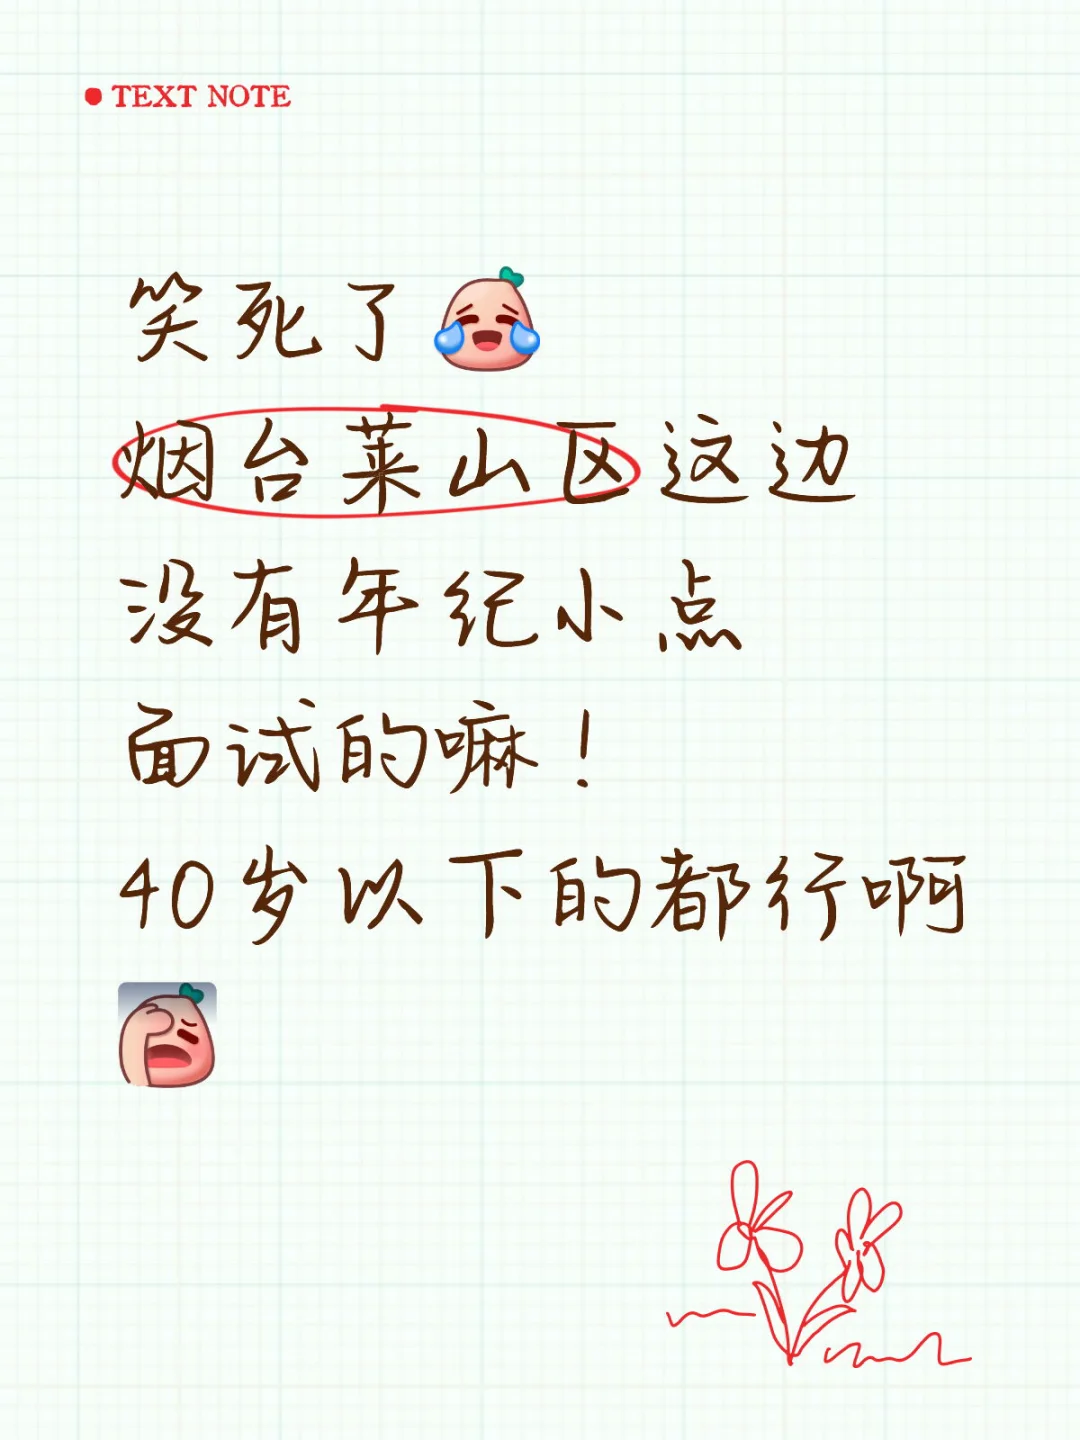 TEXT NOTE
笑死了
烟台莱山区这边
没有年纪小点
面试的嘛！
40岁以下的都行啊